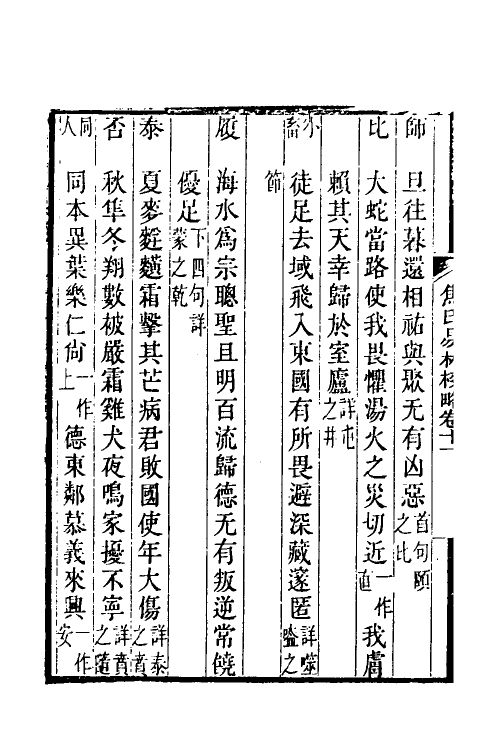 焦氏易林校略卷十一
師　旦往暮還相祐與聚无有凶惡首句頤之比
比　大蛇當路使我畏懼湯火之災切近一作直我膚
賴其天幸歸於室廬詳屯之井
小畜　徒足去域飛入東國有所畏避深藏邃匿詳噬嗑之
節
履　海水為宗聰聖且明百流歸德无有叛逆常饒
優足下四句詳蒙之乾
泰　夏麥䴢䵃霜擊其芒病君敗國使年大傷詳泰之賁
否　秋隼冬翔數被嚴霜雞犬夜鳴家擾不寧詳賁之隨
同人　同本異葉樂仁尙一作上德東鄰慕義來興一作安